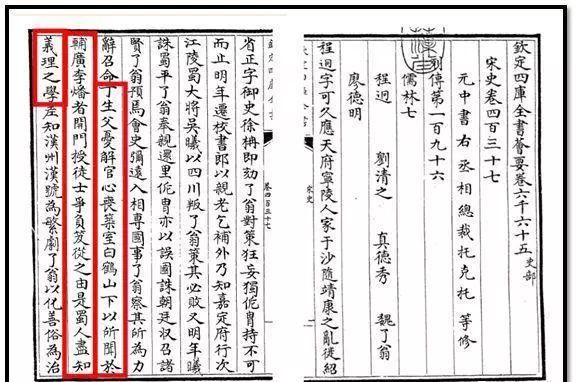 欽定四庫全書會要卷六千六十五史部
宋史卷四百三十七
元中書右丞相總裁托克托等修
列傳第一百九十六
儒林七
程迥 劉清之 真德秀 魏了翁
廖德明
程迥字可久應天府寧陵人家于沙隨靖康之亂徙紹
宋史
卷四百三十七
省正字御史徐柟即劾了翁對策狂妄獨侂胄持不可
而止明年遷校書郎以親老乞補外乃知嘉定府行次
江陵蜀大將吳曦以四川叛了翁策其必敗又明年曦
誅蜀平了翁奉親還里侂胄亦以誤國誅朝廷收召諸
賢了翁預焉會史彌遠入相專國事了翁察其所為力
辭召命丁生父憂解官心喪築室白鶴山下以所聞於
輔廣李燔者開門授徒士爭負笈從之由是蜀人盡知
義理之學差知漢州漢號為繁劇了翁以化善俗為治